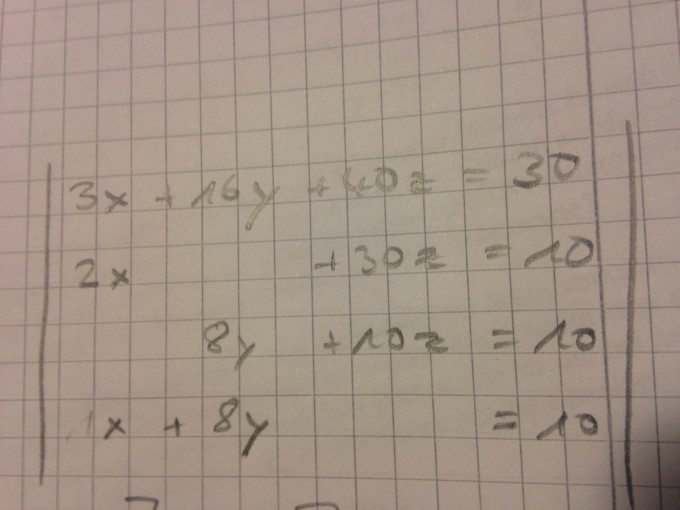 3x + 16y + 40z = 30
2x + 30z = 10
8y + 10z = 10
1x + 8y = 10